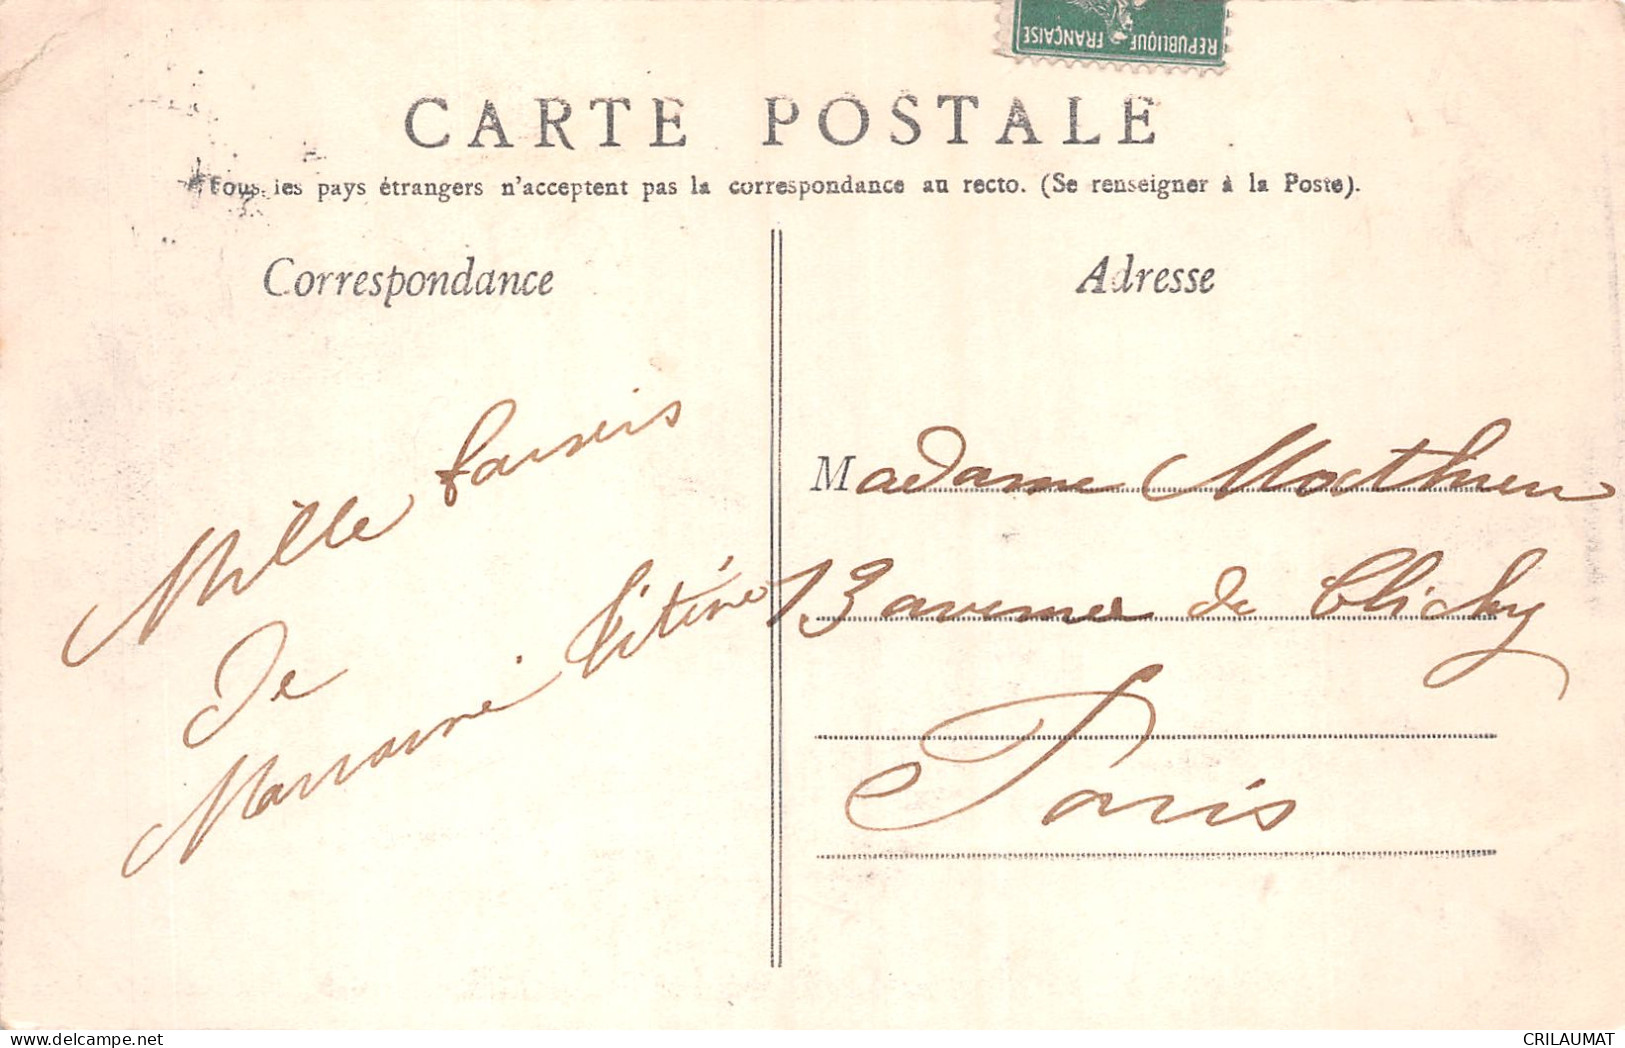 RÉPUBLIQUE FRANÇAISE
CARTE POSTALE
Tous les pays étrangers n'acceptent pas la correspondance au recto. (Se renseigner à la Poste).
Correspondance
Adresse
Mille baisers
de
Marraine Titine
Madame Mathieu
13 avenue de Clichy
Paris
CRILAUMAT